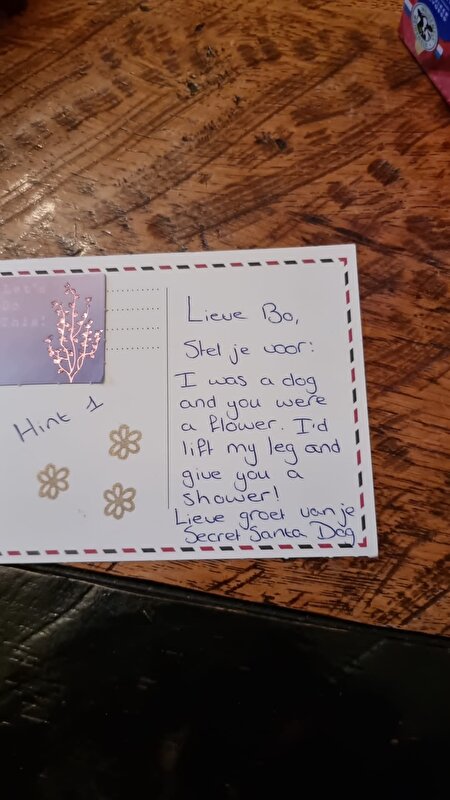 Let's
Do
This!
Hint 1
Lieve Bo,
Stel je voor:
I was a dog
and you were
a flower. I'd
lift my leg and
give you a
shower!
Lieve groet van je
Secret Santa Dog